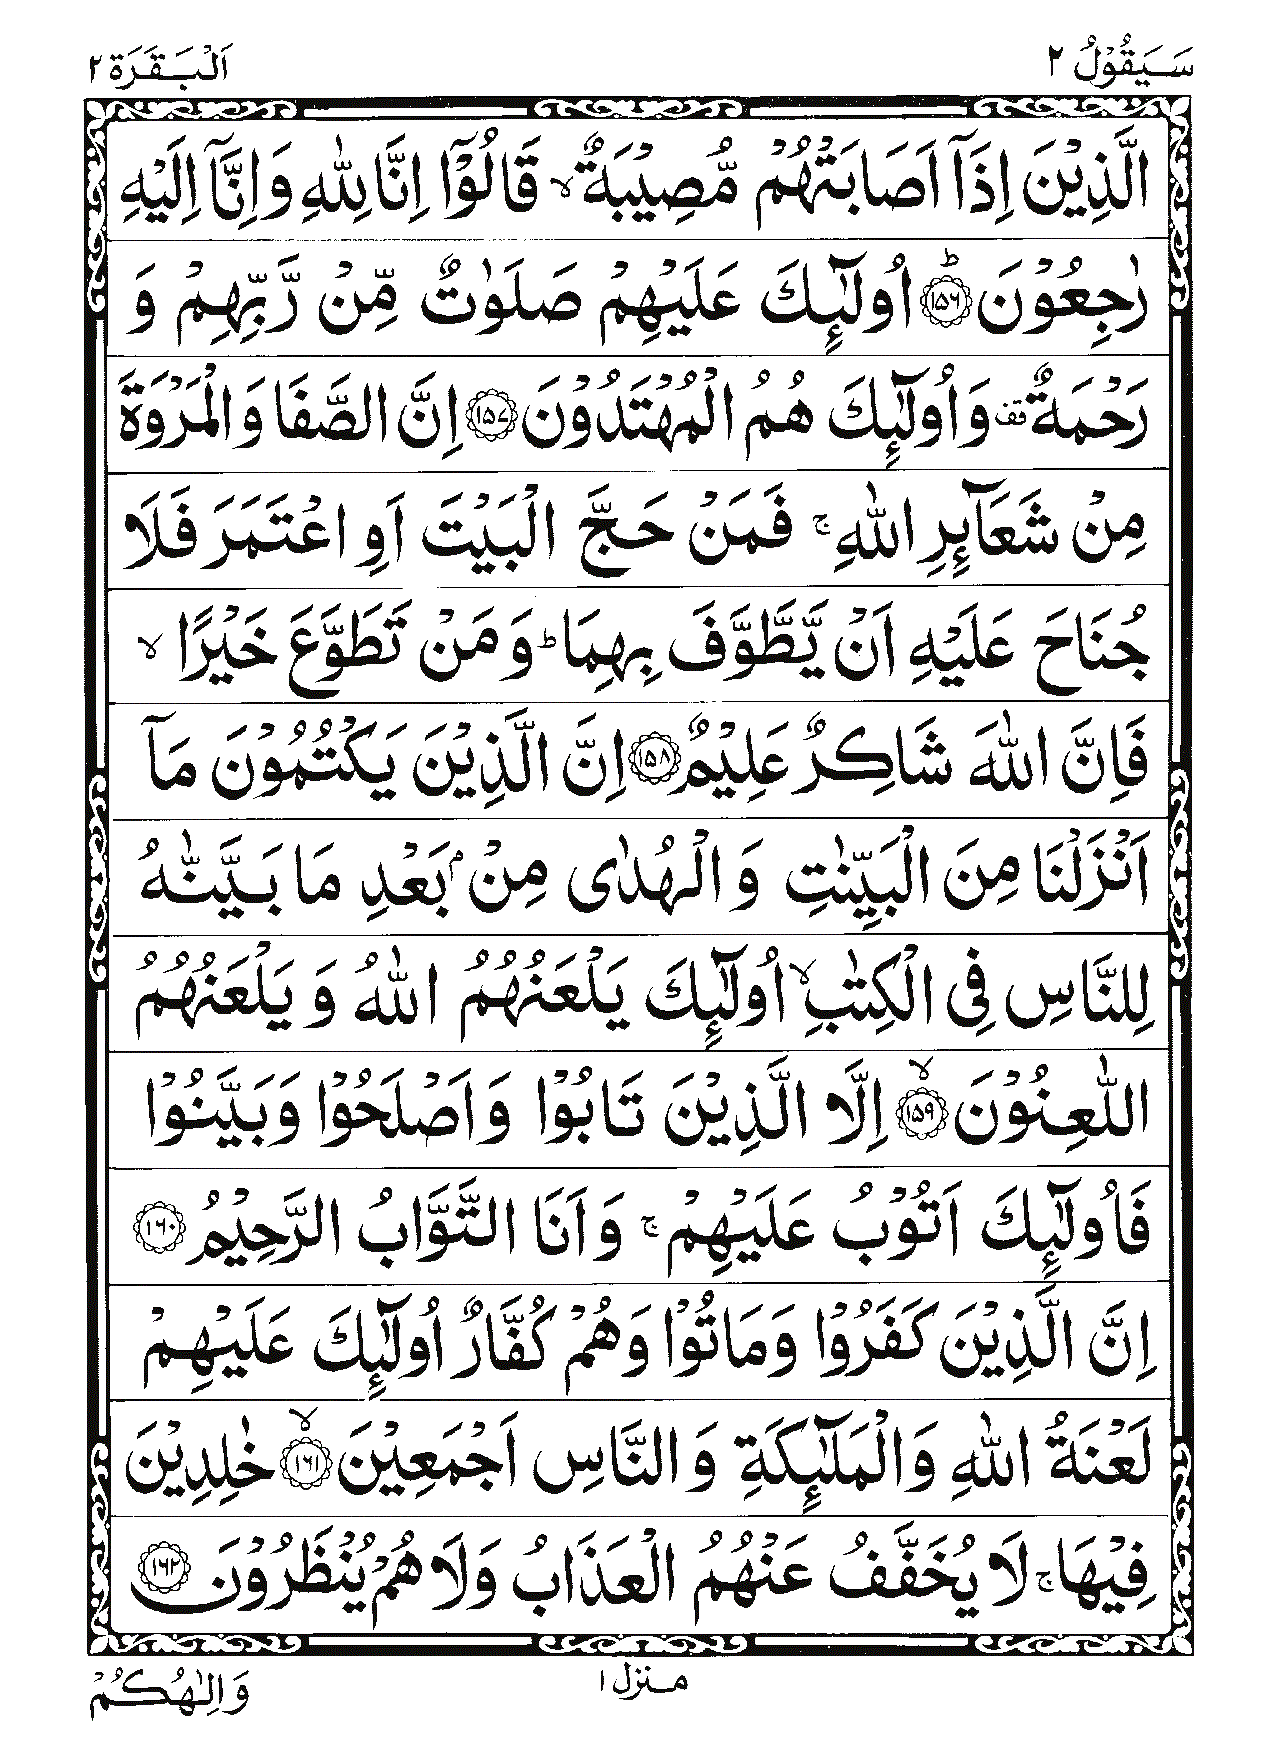 سَیَقُوْلُ ۲
اَلْبَقَرَة ۲
الَّذِیْنَ اِذَاۤ اَصَابَتْهُمْ مُّصِیْبَةٌ ۙ قَالُوْۤا اِنَّا لِلّٰهِ وَ اِنَّاۤ اِلَیْهِ
رٰجِعُوْنَ ؕ﴿۱۵۶﴾ اُولٰٓئِكَ عَلَیْهِمْ صَلَوٰتٌ مِّنْ رَّبِّهِمْ وَ
رَحْمَةٌ ۟ قف وَ اُولٰٓئِكَ هُمُ الْمُهْتَدُوْنَ ﴿۱۵۷﴾ اِنَّ الصَّفَا وَ الْمَرْوَةَ
مِنْ شَعَآئِرِ اللّٰهِ ۚ فَمَنْ حَجَّ الْبَیْتَ اَوِ اعْتَمَرَ فَلَا
جُنَاحَ عَلَیْهِ اَنْ یَّطَّوَّفَ بِهِمَا ؕ وَ مَنْ تَطَوَّعَ خَیْرًا ۙ
فَاِنَّ اللّٰهَ شَاكِرٌ عَلِیْمٌ ﴿۱۵۸﴾ اِنَّ الَّذِیْنَ یَكْتُمُوْنَ مَاۤ
اَنْزَلْنَا مِنَ الْبَیِّنٰتِ وَ الْهُدٰی مِنْۢ بَعْدِ مَا بَیَّنّٰهُ
لِلنَّاسِ فِی الْكِتٰبِ ۙ اُولٰٓئِكَ یَلْعَنُهُمُ اللّٰهُ وَ یَلْعَنُهُمُ
اللّٰعِنُوْنَ ۙ﴿۱۵۹﴾ اِلَّا الَّذِیْنَ تَابُوْا وَ اَصْلَحُوْا وَ بَیَّنُوْا
فَاُولٰٓئِكَ اَتُوْبُ عَلَیْهِمْ ۚ وَ اَنَا التَّوَّابُ الرَّحِیْمُ ﴿۱۶۰﴾
اِنَّ الَّذِیْنَ كَفَرُوْا وَ مَاتُوْا وَ هُمْ كُفَّارٌ اُولٰٓئِكَ عَلَیْهِمْ
لَعْنَةُ اللّٰهِ وَ الْمَلٰٓئِكَةِ وَ النَّاسِ اَجْمَعِیْنَ ۙ﴿۱۶۱﴾ خٰلِدِیْنَ
فِیْهَا ۚ لَا یُخَفَّفُ عَنْهُمُ الْعَذَابُ وَ لَا هُمْ یُنْظَرُوْنَ ﴿۱۶۲﴾
منزل ۱
وَ اِلٰهُكُمْ